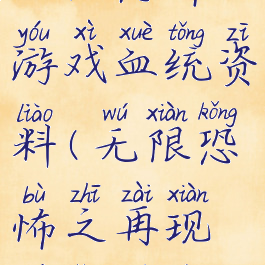 yóu xì xuè tǒng zī
游戏血统资
liào wú xiàn kǒng
料(无限恐
bù zhī zài xiàn
怖之再现